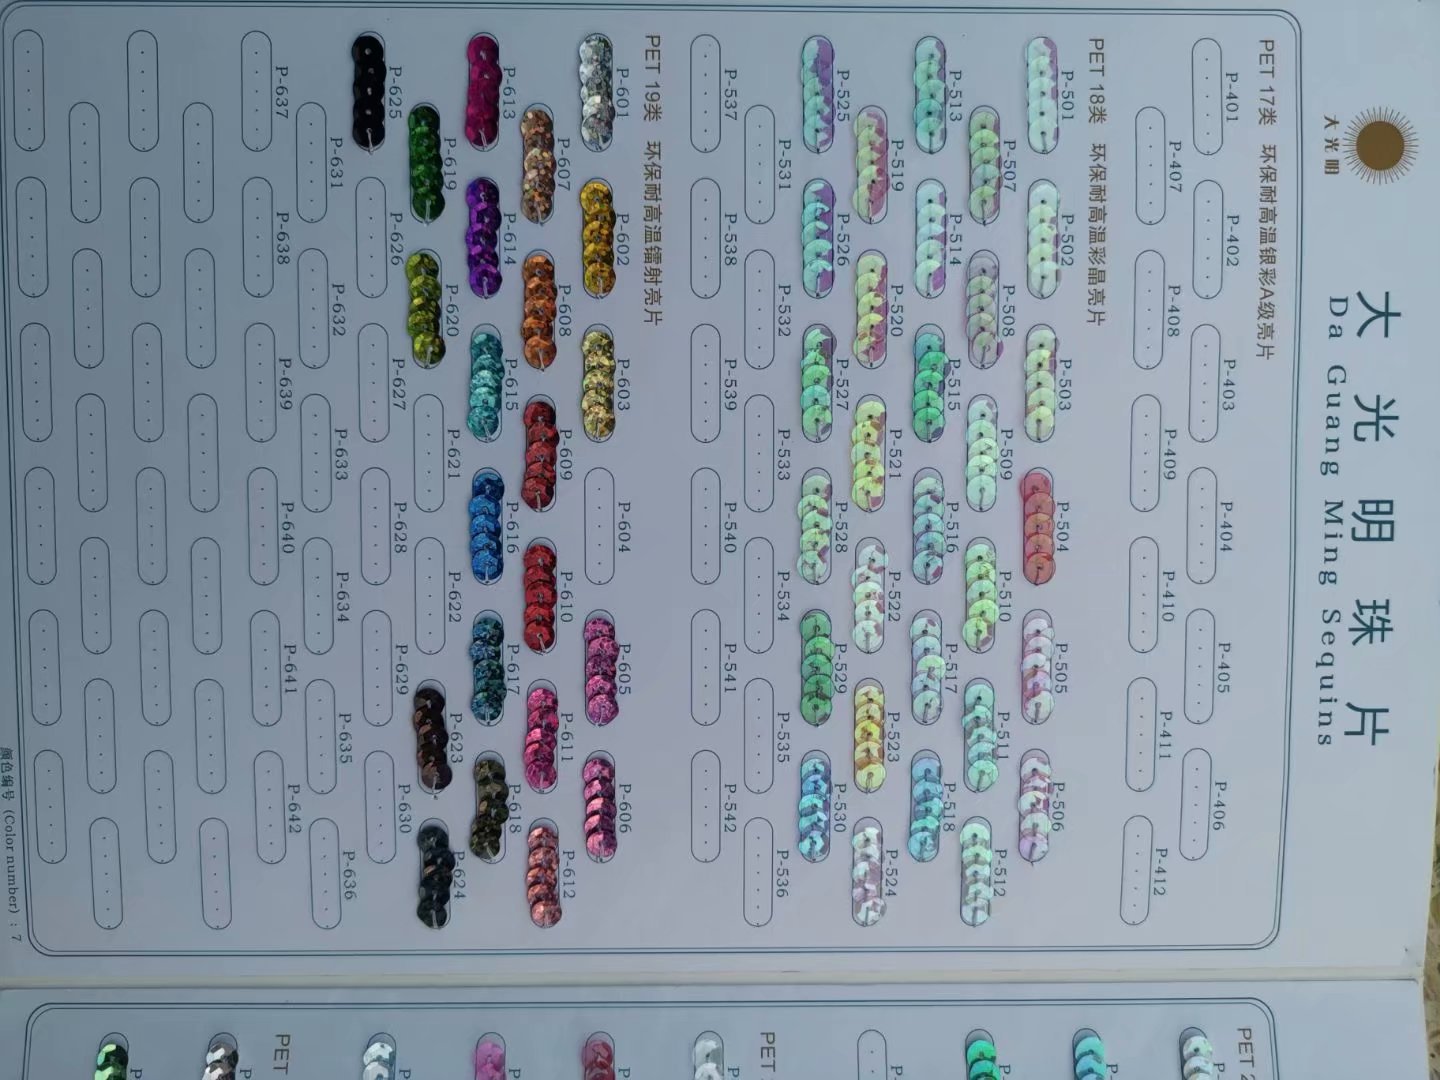 大光明
大光明珠片
Da Guang Ming Sequins
PET 17类 环保耐高温银彩A级亮片
P-401 P-402 P-403 P-404 P-405 P-406
P-407 P-408 P-409 P-410 P-411 P-412
PET 18类 环保耐高温彩晶亮片
P-501 P-502 P-503 P-504 P-505 P-506
P-507 P-508 P-509 P-510 P-511 P-512
P-513 P-514 P-515 P-516 P-517 P-518
P-519 P-520 P-521 P-522 P-523 P-524
P-525 P-526 P-527 P-528 P-529 P-530
P-531 P-532 P-533 P-534 P-535 P-536
P-537 P-538 P-539 P-540 P-541 P-542
PET 19类 环保耐高温镭射亮片
P-601 P-602 P-603 P-604 P-605 P-606
P-607 P-608 P-609 P-610 P-611 P-612
P-613 P-614 P-615 P-616 P-617 P-618
P-619 P-620 P-621 P-622 P-623 P-624
P-625 P-626 P-627 P-628 P-629 P-630
P-631 P-632 P-633 P-634 P-635 P-636
P-637 P-638 P-639 P-640 P-641 P-642
颜色编号 (Color number) : 7
PET
PET
PET